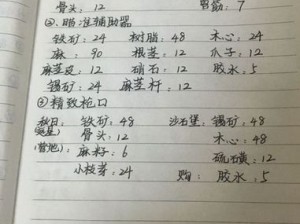 骨头：12 胃筋：7
②.瞄准辅助器
铁矿：24 树脂：48 木心：24
麻：90 根茎：12 爪子：12
麻茎皮：12 硝石：12 胶水：5
锡矿：24 麻茎秆：12
③精致枪口
秋日：铁矿：48 沙石堡：锡矿：48
骨头：12 木心：48
营地：麻籽：6 硫磺：12
小枝芽：24 购：胶水：5